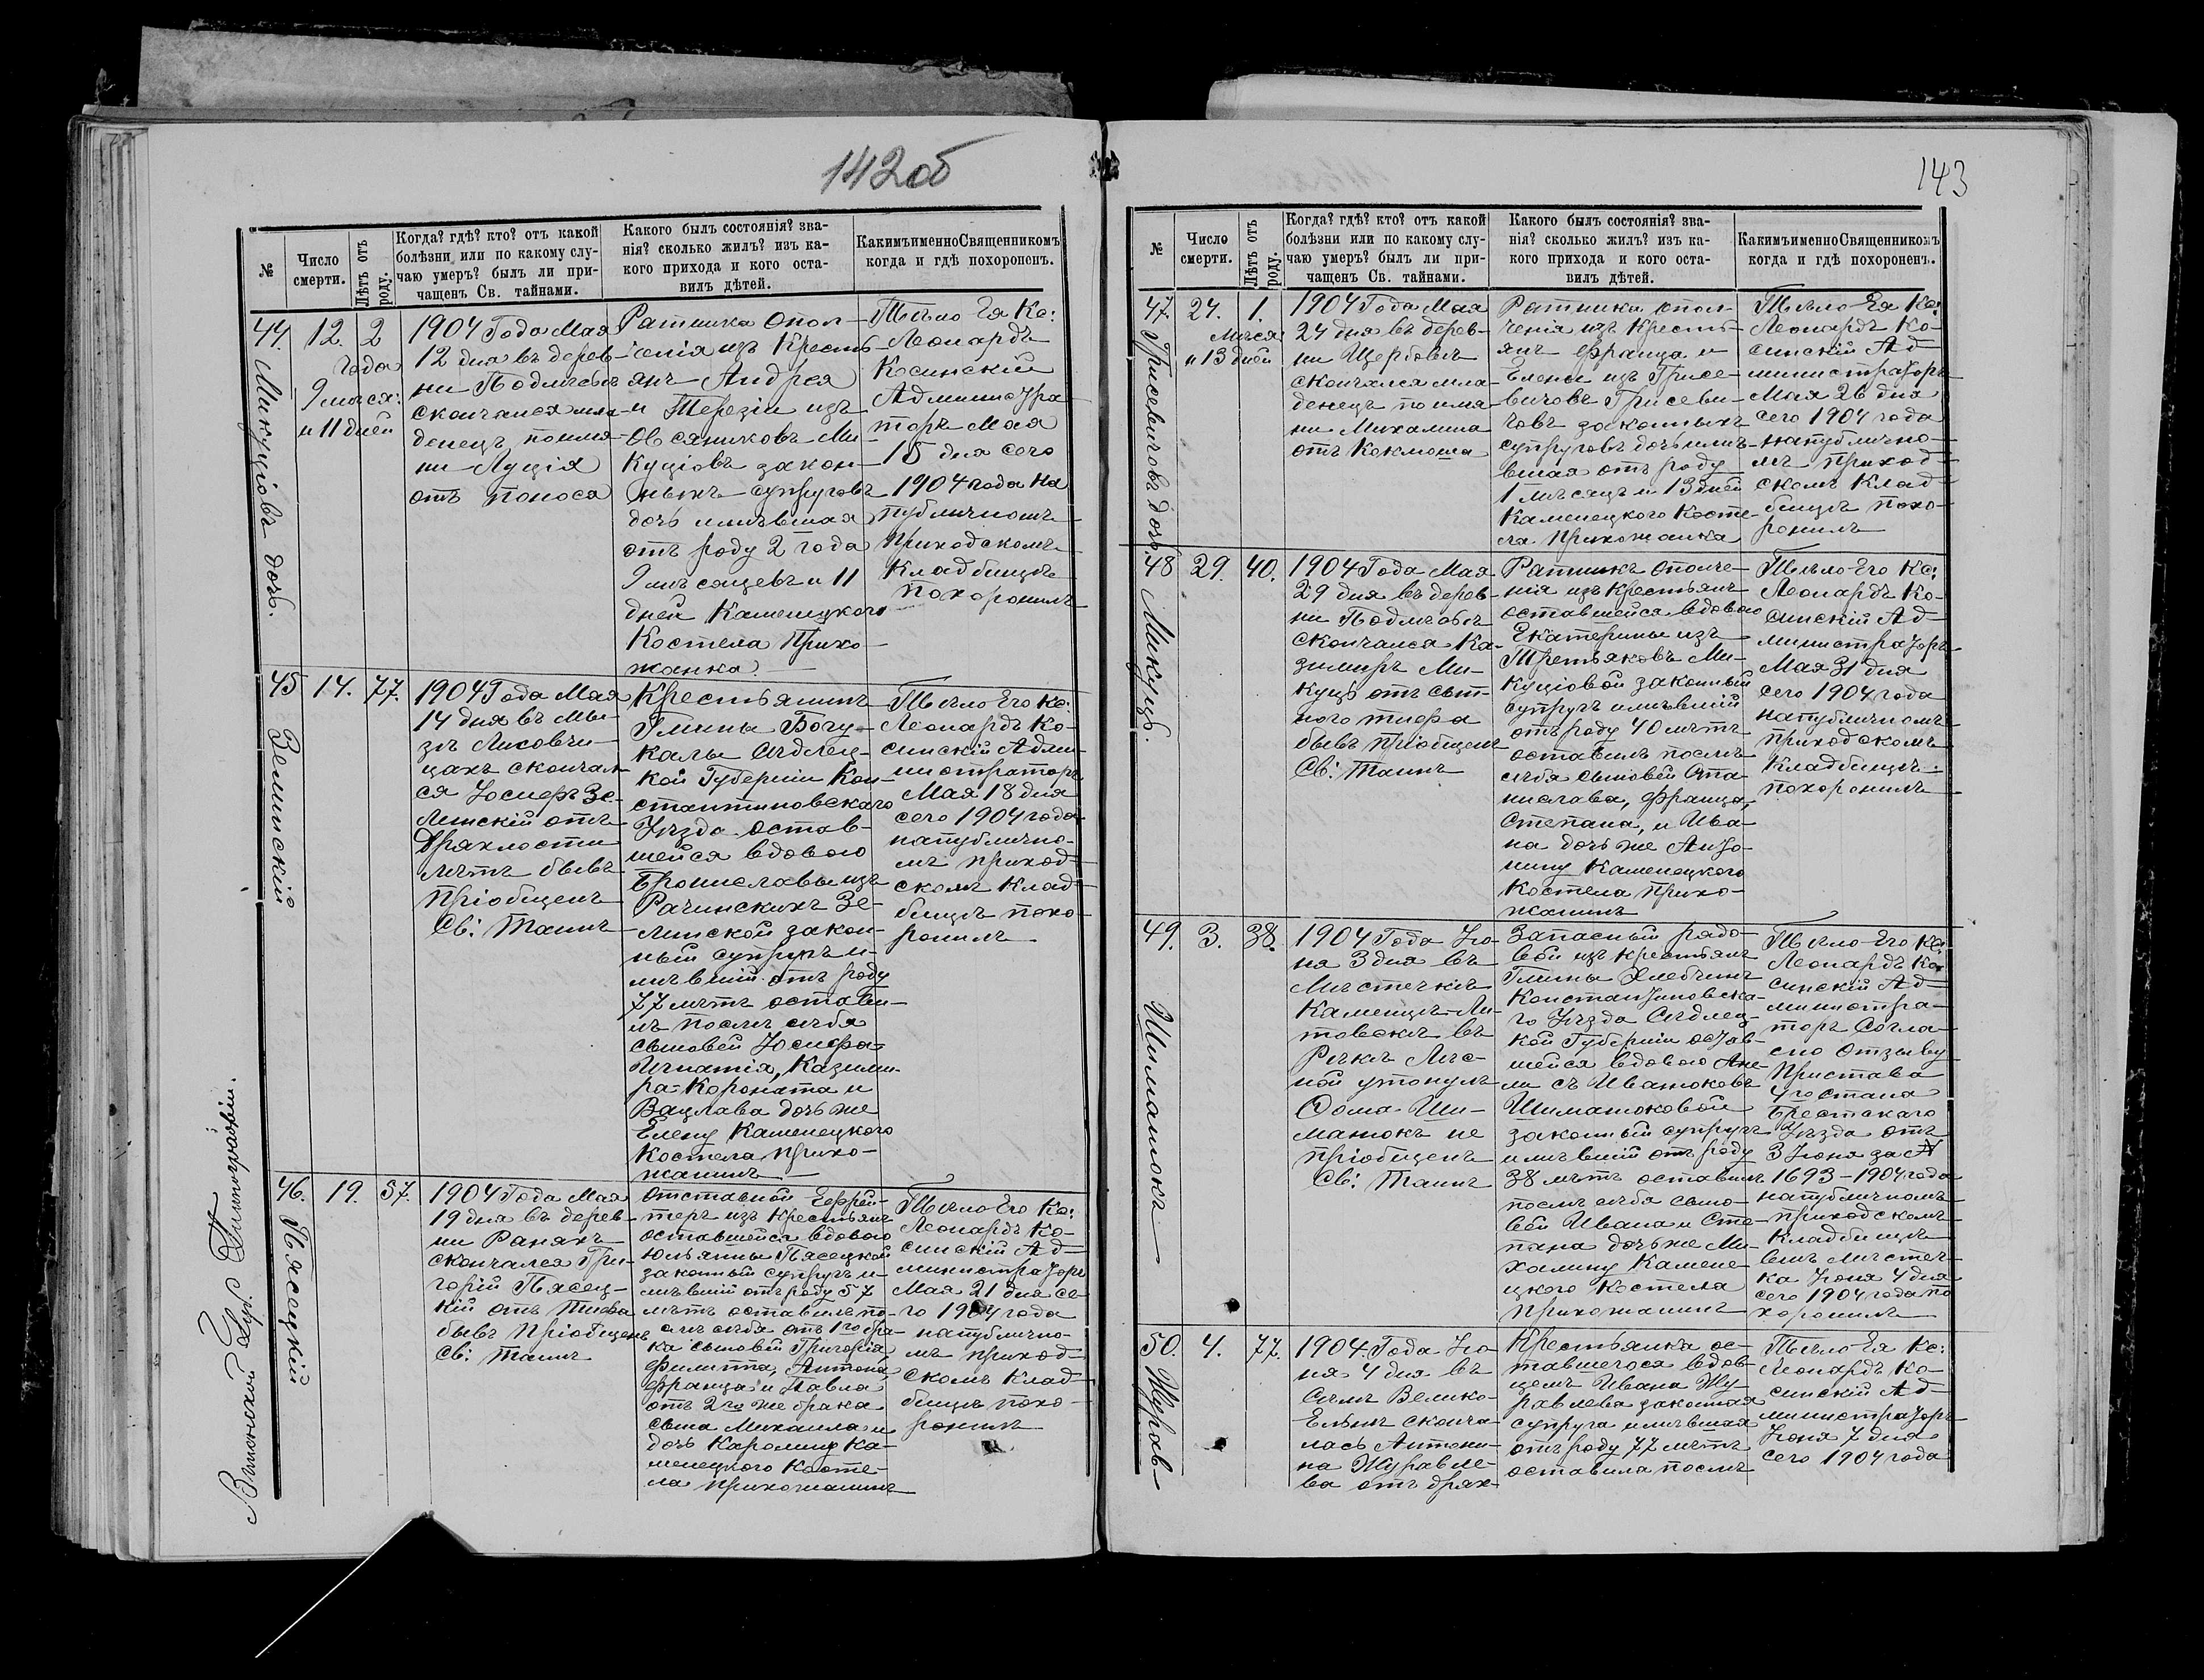 142об
№
Число
смерти.
Лѣтъ отъ
роду.
Когда? гдѣ? кто? отъ какой
болѣзни или по какому слу-
чаю умеръ? былъ ли при-
чащенъ Св. тайнами.
Какого былъ состоянія? зва-
нія? сколько жилъ? изъ ка-
кого прихода и кого оста-
вилъ дѣтей.
Какимъ именно Священникомъ
когда и гдѣ похороненъ.
44.
Микуціовъ дочь.
12.
2
года
9 мѣсяц:
и 11 дней
1904 Года Мая
12 дня въ дерев-
ни Подлѣсьи
скончался мла-
денецъ по имя-
ни Луція
отъ поноса
Ратника опол-
ченія изъ Кресть-
янъ Андрея
и Терезіи изъ
Овсяниковъ Ми-
куціовъ закон-
ныхъ супруговъ
дочь имѣвшая
отъ роду 2 года
9 мѣсяцевъ и 11
дней Каменецкого
Костела Прихо-
жанка.
Тѣло Ея Кс:
Леонардъ
Косинскій
Администра
торъ Мая
15 дня сего
1904 года на
публичномъ
приходскомъ
Кладбищѣ
похоронилъ
45
Зелинскій
14.
77.
1904 Года Мая
14 дня въ Мы-
зѣ Лисовчи-
цахъ скончал-
ся Іосифъ Зе-
линскій отъ
Дряхлости
лѣтъ бывъ
пріобщенъ
Св: Таинъ
Крестьянинъ
Гмины Богу-
калы Сѣдлец-
кой Губерніи Кон-
стантиновскаго
Уѣзда остав-
шейся вдовою
Брониславы изъ
Рачинскихъ Зе-
линской закон-
ный супругъ и-
мѣвшій отъ роду
77 лѣтъ остави-
лъ послѣ себя
сыновей Іосифа-
Игнатія, Казими-
ра-Короната и
Вацлава дочь же
Елену Каменецкого
Костела прихо-
жанинъ
Тѣло Его Кс:
Леонардъ Ко-
синскій Адми-
нистраторъ
Мая 18 дня
сего 1904 года
на публично-
мъ приход-
скомъ Клад-
бищѣ похо-
ронилъ
46.
Пясецкій
19.
57.
1904 Года Мая
19 дня въ дерев-
ни Раняхъ
скончался Гри-
горій Пясец-
кій отъ Тифа
бывъ пріобщенъ
Св: Таинъ
Отставной Ефрей-
торъ изъ Крестьянъ
оставшейся вдовою
Юльянны Пясецкой
законный супругъ и-
мѣвшій отъ роду 57
лѣтъ оставилъ по-
слѣ себя отъ 1го бра-
ка сыновей Григорія,
Филиппа, Антона,
Франца и Павла
отъ 2го же брака
сына Михаила и
дочь Каролину Ка-
менецкого Косте-
ла прихожанинъ
Тѣло Его Кс:
Леонардъ Ко-
синскій Ад-
министраторъ
Мая 21 дня се-
го 1904 года
на публично-
мъ приход-
скомъ Клад-
бищѣ похо-
ронилъ
143
№
Число
смерти.
Лѣтъ отъ
роду.
Когда? гдѣ? кто? отъ какой
болѣзни или по какому слу-
чаю умеръ? былъ ли при-
чащенъ Св. тайнами.
Какого былъ состоянія? зва-
нія? сколько жилъ? изъ ка-
кого прихода и кого оста-
вилъ дѣтей.
Какимъ именно Священникомъ
когда и гдѣ похороненъ.
47.
Грисевичовъ дочь.
24.
1.
Мѣсяц
и 13 дней
1904 Года Мая
24 дня въ дерев-
ни Щербовъ
скончался мла-
денецъ по имя-
ни Михалина
отъ Коклюша
Ратника опол-
ченія изъ Кресть-
янъ Франца и
Елены изъ Грисе-
вичовъ Грисеви-
човъ законныхъ
супруговъ дочь имѣ-
вшая отъ роду
1 мѣсяцъ и 13 дней
Каменецкого Косте-
ла Прихожанка
Тѣло Ея Кс:
Леонардъ Ко-
синскій Ад-
министраторъ
Мая 26 дня
сего 1904 года
на публично-
мъ приход-
скомъ Клад-
бищѣ похо-
ронилъ
48
Микуць.
29.
40.
1904 Года Мая
29 дня въ дерев-
ни Подлѣсьи
скончался Ка-
зимиръ Ми-
куць отъ сып-
ного тифа
бывъ пріобщенъ
Св: Таинъ
Ратникъ ополче-
нія изъ Крестьянъ
оставшейся вдовою
Екатерины изъ
Третьяковъ Ми-
куціовой законный
супругъ имѣвшій
отъ роду 40 лѣтъ
оставилъ послѣ
себя сыновей Ста-
нислава, Франца,
Степана, и Ива-
на дочь же Анто-
нину Каменецкого
Костела Прихо-
жанинъ
Тѣло Его Кс:
Леонардъ Ко-
синскій Ад-
министраторъ
Мая 31 дня
сего 1904 года
на публичномъ
приходскомъ
Кладбищѣ
похоронилъ
49.
Шиманюкъ
3.
38.
1904 Года Ію-
ня 3 дня въ
Мѣстечкѣ
Каменцѣ-Ли-
товскѣ въ
Рѣчкѣ Лѣс-
ной утонулъ
Фома Ши-
манюкъ не
пріобщенъ
Св: Таинъ
Запасный рядо-
вой изъ крестьянъ
Гмины Хлебчинъ
Константиновска-
го Уѣзда Сѣдлец-
кой Губерніи остав-
шейся вдовою Ане-
ли съ Иванюковъ
Шиманюковой
законный супругъ
имѣвшій отъ роду
38 лѣтъ оставилъ
послѣ себя сыно-
вей Ивана и Сте-
пана дочь же Ми-
халину Камене-
цкого Костела
прихожанинъ
Тѣло Его Кс:
Леонардъ Ко-
синскій Ад-
министра-
торъ Согла-
сно отзыву
Пристава
4го стана
Брестскаго
Уѣзда отъ
3 Іюня за №
1693-1904 года
на публичномъ
приходскомъ
Кладбищѣ
ка Іюня 4 дня
сего 1904 года по
хоронилъ
50.
Журав-
4.
77.
1904. Года Ію-
ня 4 дня въ
Селѣ Велико-
скончa-
лась Антони-
на Журавле-
ва отъ дрях-
Крестьянка ос-
тавшегося вдов-
цемъ Ивана Жу-
равлева законная
супруга имѣвшая
отъ роду 77 лѣтъ
оставила послѣ
Тѣло Ея Кс:
Леонардъ Ко-
синскій Ад-
министраторъ
Іюня 7 дня
сего 1904 года